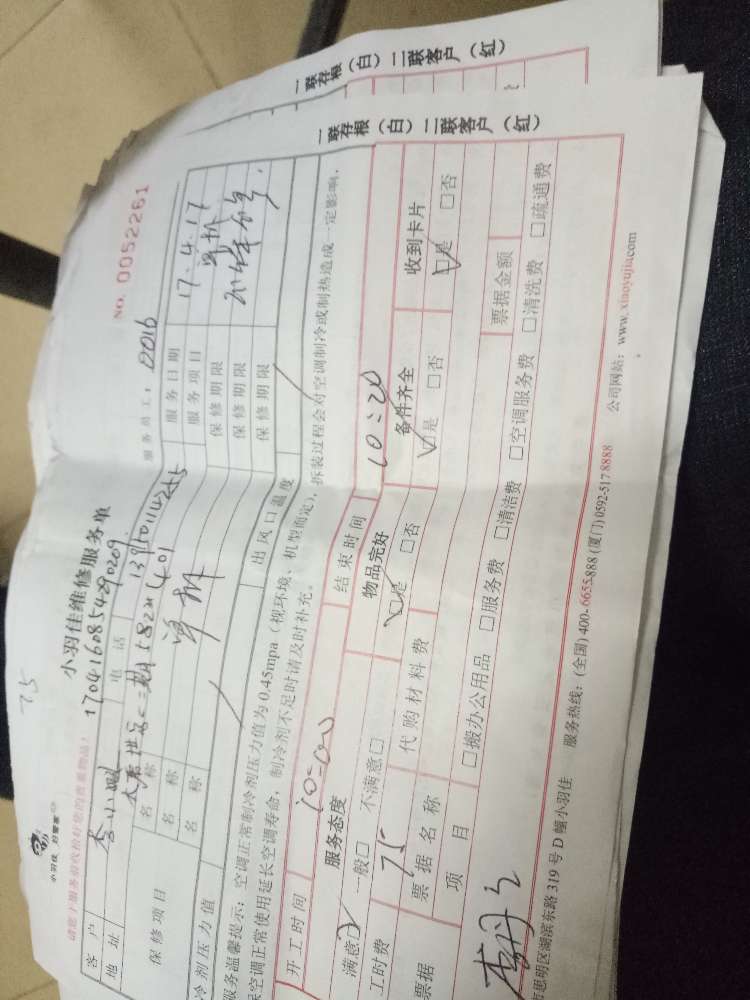 一联存根（白）二联客户（红）
一联存根（白）二联客户（红）
75
小羽佳 好管家
NO. 0052261
小羽佳维修服务单
1704160854290209
服务员工：0016
客户 李小姐 电话 服务日期 17.4.17
地址 服务项目
保修项目 名称 保修期限
名称 保修期限
名称 保修期限
冷剂压力值 出风口温度
服务温馨提示：空调正常制冷剂压力值为0.45mpa（视环境、机型而定），拆装过程会对空调制冷或制热造成一定影响，
保空调正常使用延长空调寿命，制冷剂不足时请及时补充。
开工时间 10=00 结束时间 10=20
服务态度 物品完好 备件齐全 收到卡片
满意☑ 一般□ 不满意□ ☑是 □否 ☑是 □否 ☑是 □否
工时费 75 代购材料费
票据 票据名称 票据金额
项目 □搬办公用品 □服务费 □清洁费 □空调服务费 □清洗费 □疏通费
思明区湖滨东路319号D幢小羽佳 服务热线：(全国) 400-6655-888 (厦门) 0592-5178888 公司网站：www.xiaoyujia.com